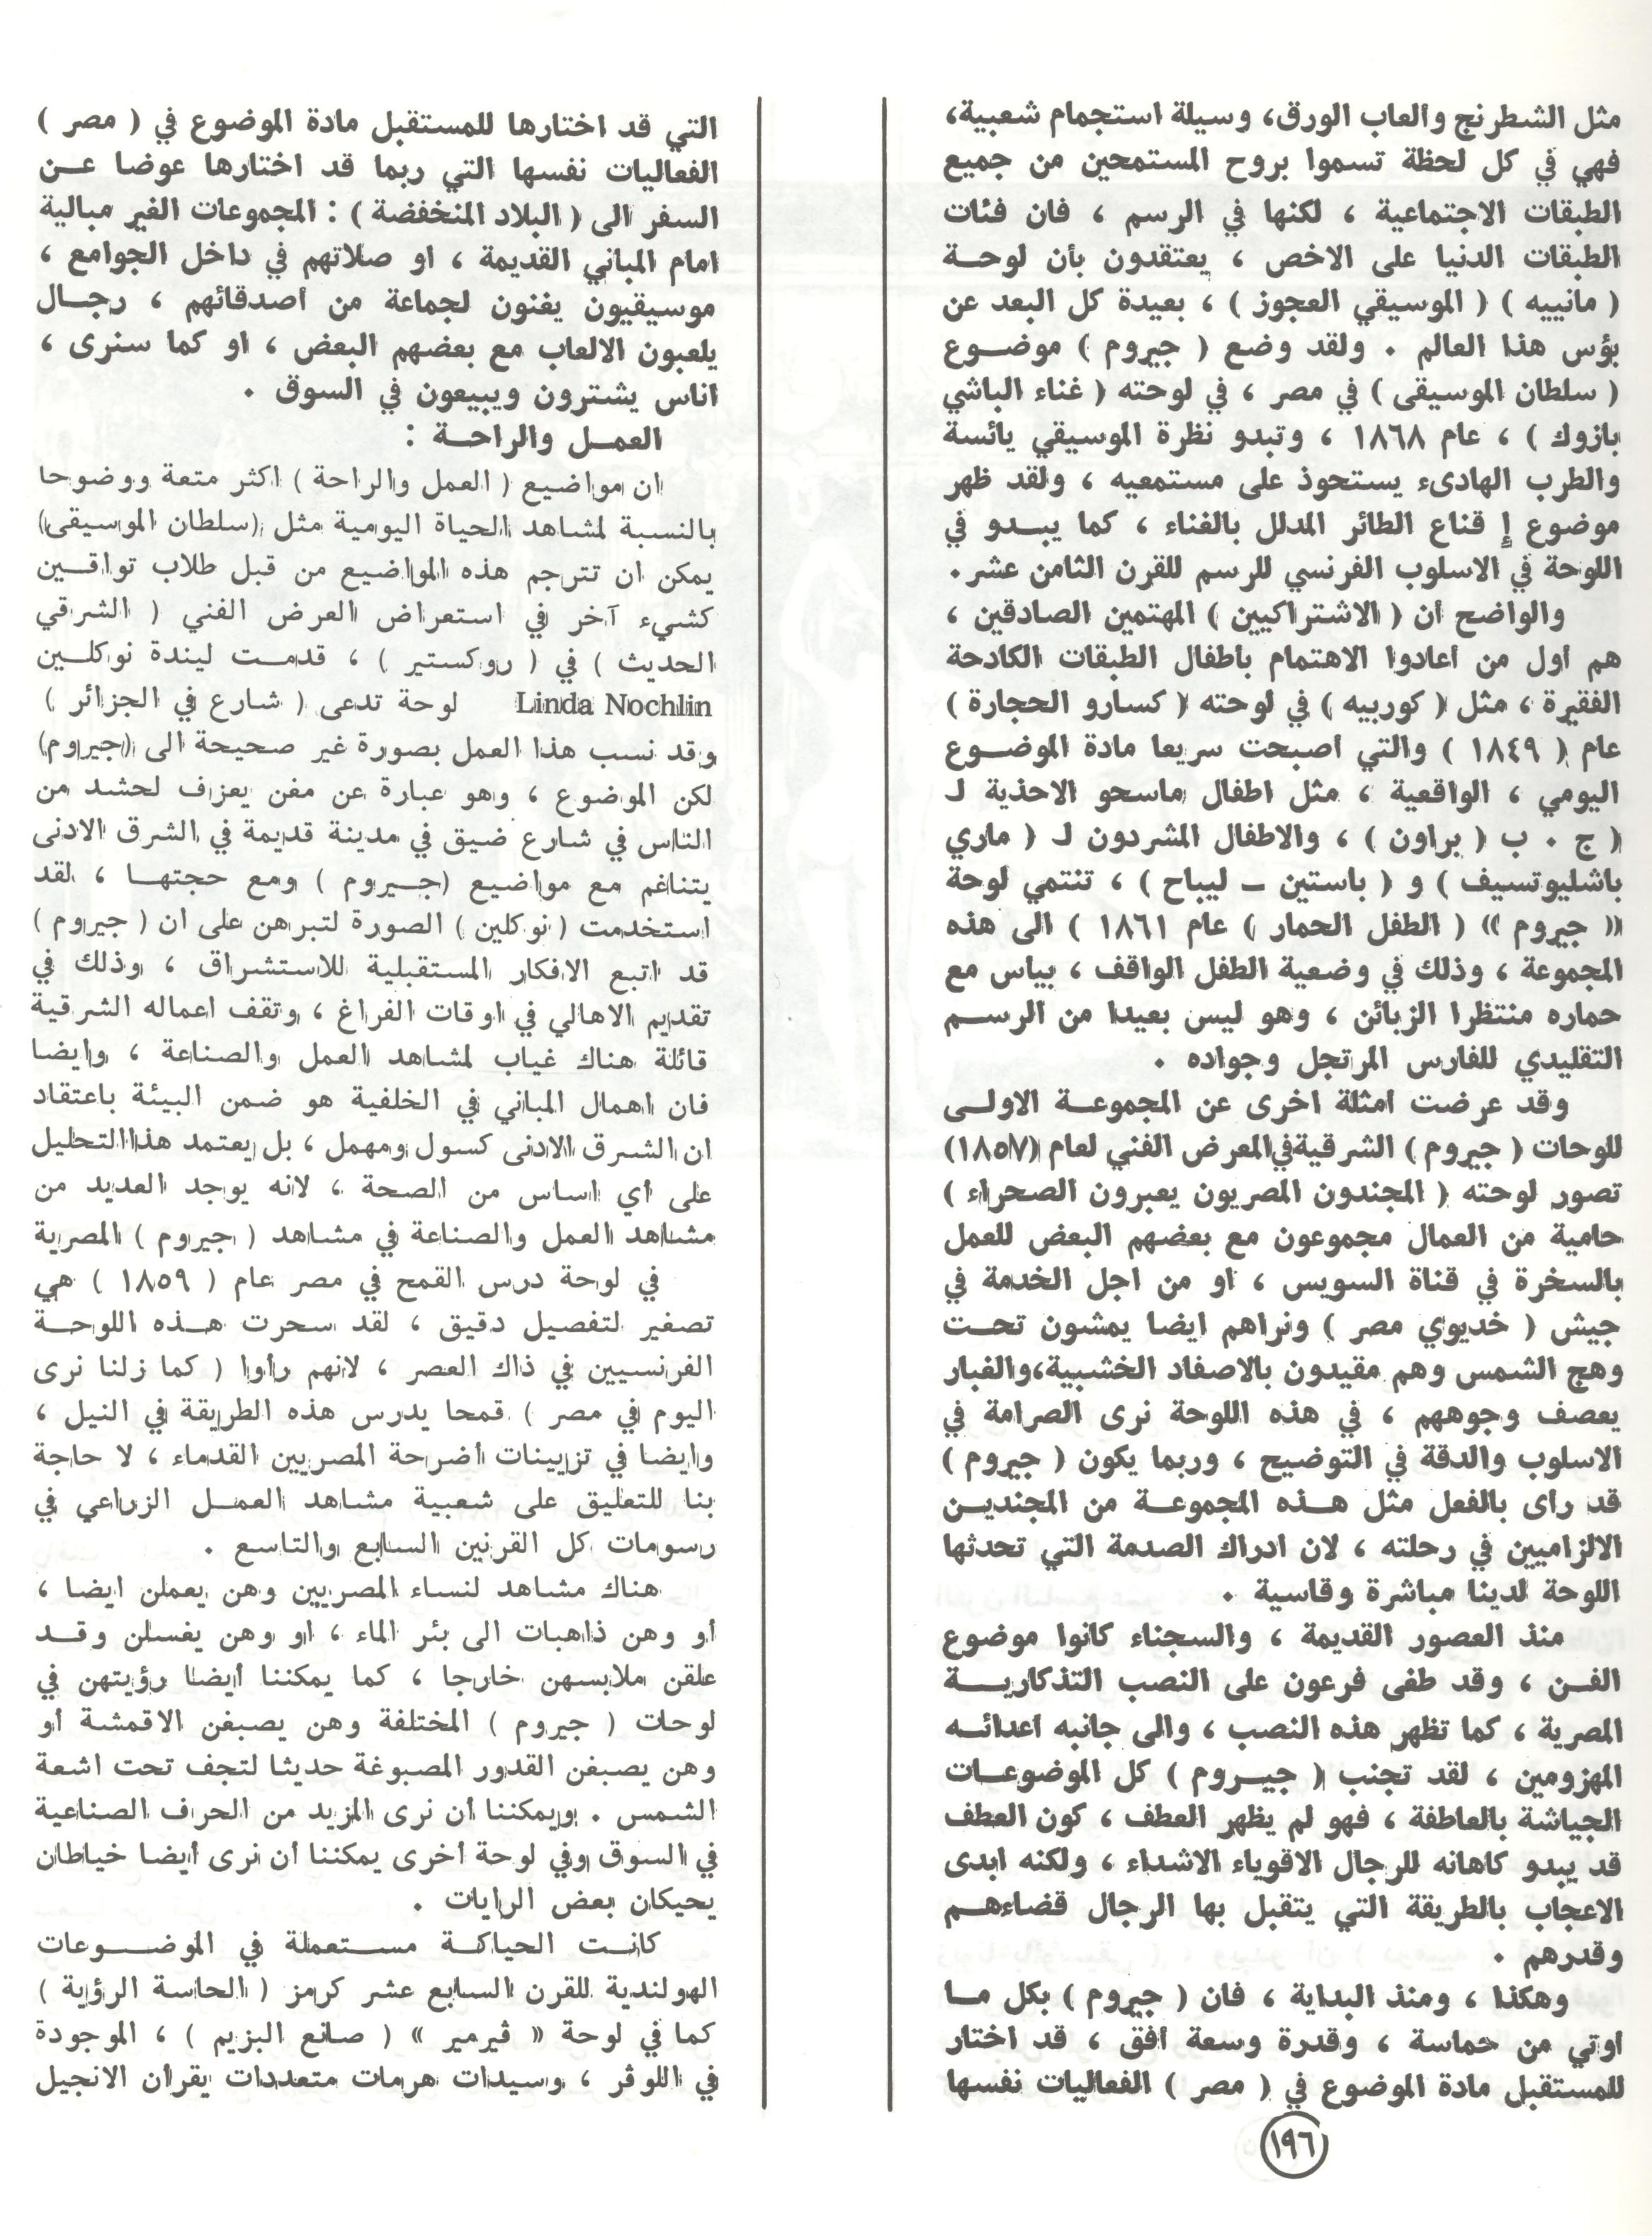 مثل الشطرنج والعاب الورق، وسيلة استجمام شعبية،
فهي في كل لحظة تسموا بروح المستمحين من جميع
الطبقات الاجتماعية ، لكنها في الرسم ، فان فئات
الطبقات الدنيا على الاخص ، يعتقدون بأن لوحـة
( مانييه ) ( الموسيقي العجوز ) ، بعيدة كل البعد عن
بؤس هذا العالم . ولقد وضع ( جيروم ) موضـوع
( سلطان الموسيقى ) في مصر ، في لوحته ( غناء الباشي
بازوك ) ، عام ١٨٦٨ ، وتبدو نظرة الموسيقي يائسة
والطرب الهادىء يستحوذ على مستمعيه ، ولقد ظهر
موضوع إ قناع الطائر المدلل بالغناء ، كما يبـدو في
اللوحة في الاسلوب الفرنسي للرسم للقرن الثامن عشر.
والواضح ان ( الاشتراكيين ) المهتمين الصادقين ،
هم أول من أعادوا الاهتمام باطفال الطبقات الكادحة
الفقيرة ، مثل ( كوربيه ) في لوحته ( كسارو الحجارة )
عام ( ١٨٤٩ ) والتي اصبحت سريعا مادة الموضـوع
اليومي ، الواقعية ، مثل اطفال ماسحو الاحذية لـ
( ج . ب ( براون ) ، والاطفال المشردون لـ ( ماري
باشليوتسيف ) و ( باستين ـ ليباح ) ، تنتمي لوحة
« جيروم » ( الطفل الحمار ) عام ١٨٦١ ) الى هذه
المجموعة ، وذلك في وضعية الطفل الواقف ، بياس مع
حماره منتظرا الزبائن ، وهو ليس بعيدا من الرسـم
التقليدي للفارس المرتجل وجواده .
وقد عرضت امثلة اخرى عن المجموعـة الاولـى
للوحات ( جيروم ) الشرقية في المعرض الفني لعام (١٨٥٧)
تصور لوحته ( المجندون المصريون يعبرون الصحراء )
حامية من العمال مجموعون مع بعضهم البعض للعمل
بالسخرة في قناة السويس ، او من اجل الخدمة في
جيش ( خديوي مصر ) ونراهم ايضا يمشون تحـت
وهج الشمس وهم مقيدون بالاصفاد الخشبية،والغبار
يعصف وجوههم ، في هذه اللوحة نرى الصرامة في
الاسلوب والدقة في التوضيح ، وربما يكون ( جيروم )
قد راى بالفعل مثل هـذه المجموعـة من المجنديـن
الالزاميين في رحلته ، لان ادراك الصدمة التي تحدثها
اللوحة لدينا مباشرة وقاسية .
منذ العصور القديمة ، والسجناء كانوا موضوع
الفـن ، وقد طغى فرعون على النصب التذكاريـة
المصرية ، كما تظهر هذه النصب ، والى جانبه اعدائـه
المهزومين ، لقد تجنب ( جيـروم ) كل الموضوعـات
الجياشة بالعاطفة ، فهو لم يظهر العطف ، كون العطف
قد يبدو كاهانه للرجال الاقوياء الاشداء ، ولكنه ابدى
الاعجاب بالطريقة التي يتقبل بها الرجال قضاءهـم
وقدرهم .
وهكذا ، ومنذ البداية ، فان ( جيروم ) بكل مـا
اوتي من حماسة ، وقدرة وسعة افق ، قد اختار
للمستقبل مادة الموضوع في ( مصر ) الفعاليات نفسها
التي قد اختارها للمستقبل مادة الموضوع في ( مصر )
الفعاليات نفسها التي ربما قد اختارها عوضا عـن
السفر الى ( البلاد المنخفضة ) : المجموعات الغير مبالية
امام المباني القديمة ، او صلاتهم في داخل الجوامع ،
موسيقيون يغنون لجماعة من أصدقائهم ، رجـال
يلعبون الالعاب مع بعضهم البعض ، او كما سنرى ،
اناس يشترون ويبيعون في السوق .
العمـل والراحـة :
ان مواضيع ( العمل والراحة ) اكثر متعة ووضوحا
بالنسبة لمشاهد الحياة اليومية مثل (سلطان الموسيقى)
يمكن ان تترجم هذه المواضيع من قبل طلاب تواقـين
كشيء آخر في استعراض العرض الفني ( الشرقي
الحديث ) في ( روكستير ) ، قدمـت ليندة نوكلـين
Linda Nochlin لوحة تدعى ( شارع في الجزائر )
وقد نسب هذا العمل بصورة غير صحيحة الى (جيروم)
لكن الموضوع ، وهو عبارة عن مغن يعزف لحشد من
الناس في شارع ضيق في مدينة قديمة في الشرق الادنى
يتناغم مع مواضيع (جـيروم ) ومع حجتهـا ، لقد
استخدمت ( نوكلين ) الصورة لتبرهن على ان ( جيروم )
قد اتبع الافكار المستقبلية للاستشراق ، وذلك في
تقديم الاهالي في اوقات الفراغ ، وتقف اعماله الشرقية
قائلة هناك غياب لمشاهد العمل والصناعة ، وايضا
فان اهمال المباني في الخلفية هو ضمن البيئة باعتقاد
ان الشرق الادنى كسول ومهمل ، بل يعتمد هذا التحليل
على أي اساس من الصحة ، لانه يوجد العديد من
مشاهد العمل والصناعة في مشاهد ( جيروم ) المصرية
في لوحة درس القمح في مصر عام ( ١٨٥٩ ) هي
تصغير لتفصيل دقيق ، لقد سحرت هـذه اللوحـة
الفرنسيين في ذاك العصر ، لانهم رأوا ( كما زلنا نرى
اليوم في مصر ) قمحا يدرس هذه الطريقة في النيل ،
وايضا في تزيينات أضرحة المصريين القدماء ، لا حاجة
بنا للتعليق على شعبية مشاهد العمـل الزراعي في
رسومات كل القرنين السابع والتاسع .
هناك مشاهد لنساء المصريين وهن يعملن ايضا ،
أو وهن ذاهبات الى بئر الماء ، او وهن يغسلن وقـد
علقن ملابسهن خارجا ، كما يمكننا أيضا رؤيتهن في
لوحات ( جيروم ) المختلفة وهن يصبغن الاقمشة أو
وهن يصبغن القدور المصبوغة حديثا لتجف تحت اشعة
الشمس . ويمكننا أن نرى المزيد من الحرف الصناعية
في السوق وفي لوحة أخرى يمكننا أن نرى أيضا خياطان
يحيكان بعض الرايات .
كانـت الحياكـة مستعملة في الموضـوعات
الهولندية للقرن السابع عشر كرمز ( الحاسة الرؤية )
كما في لوحة « ڤيرمير » ( صانع البزيم ) ، الموجودة
في اللوڤر ، وسيدات هرمات متعددات يقرأن الانجيل
١٩٦